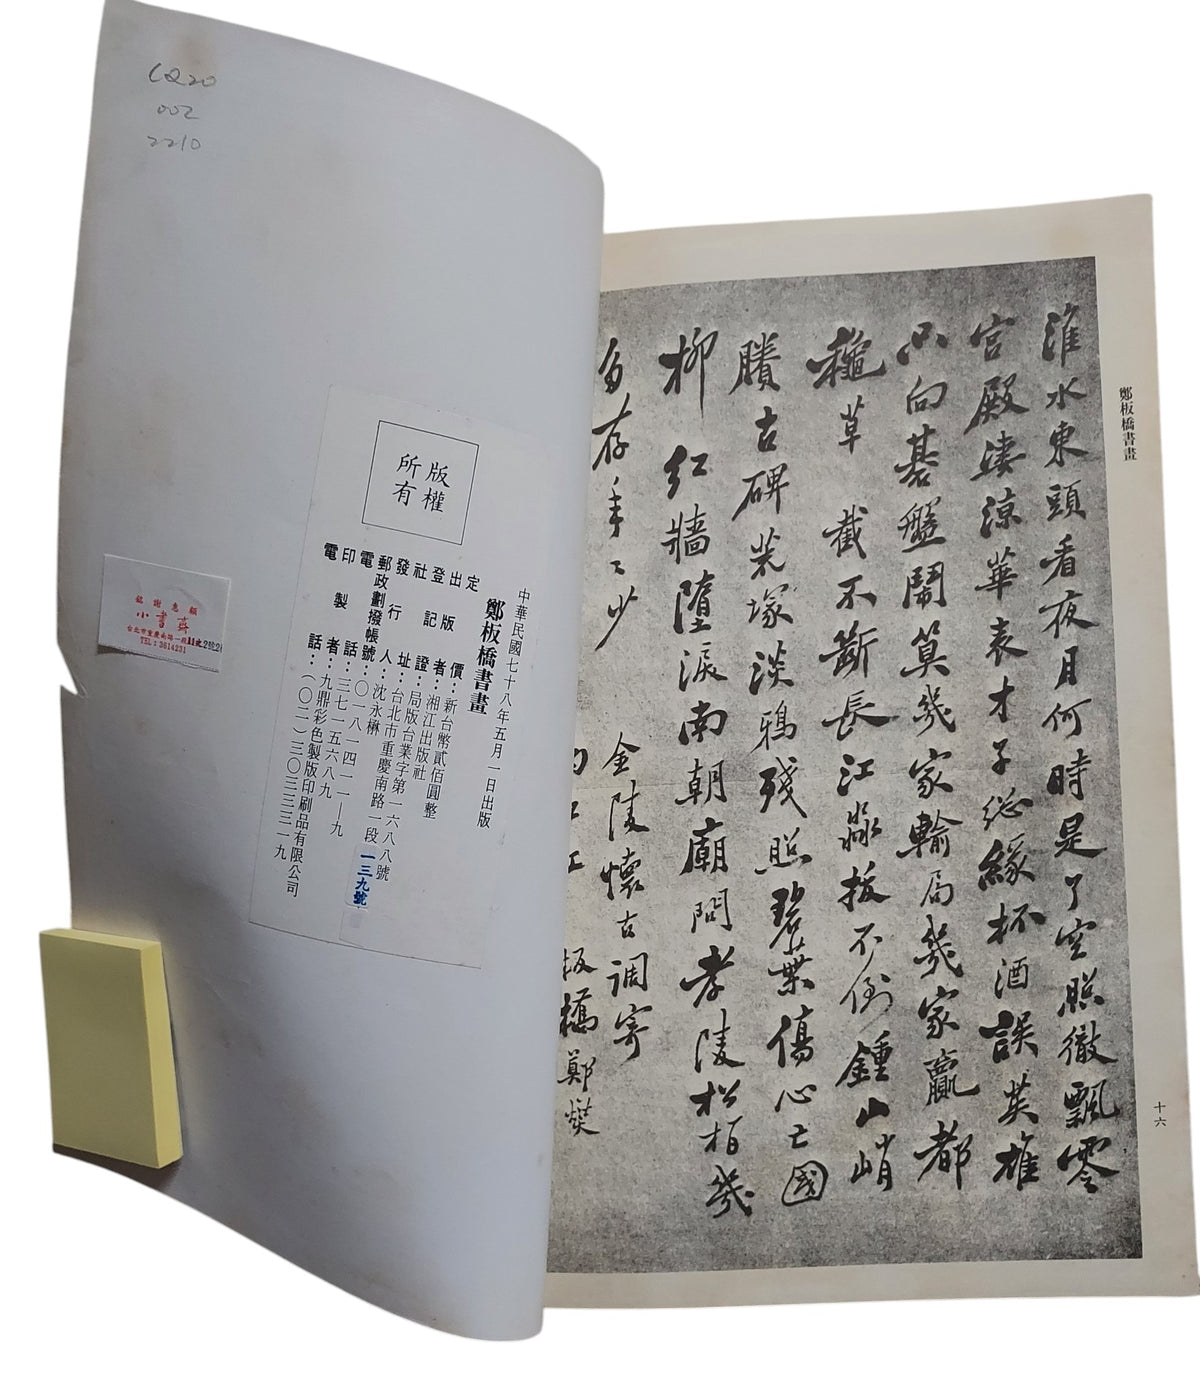 LQ20
002
2210
版權
所有
中華民國七十八年五月一日出版
鄭板橋書畫
定價：新台幣貳佰圓整
出版者：湘江出版社
登記證：局版台業字第一六八八號
社址：台北市重慶南路一段一三九號
發行人：沈永楙
郵政劃撥帳號：〇一八一四一一—九
電話：三七一五六八九
印製者：九鼎彩色製版印刷品有限公司
電話：(〇二)三〇三三三一九
銘謝惠顧
小書齋
台北市重慶南路一段
TEL:3614231
鄭板橋書畫
淮水東頭看夜月何時是了空照徹飄零
宮殿淒涼華表才子総緣杯酒誤英雄
只向碁盤鬧算幾家輸局幾家贏都
穐草截不斷長江淼拔不倒鍾山峭
賸古碑荒塚淡鴉殘照碧葉傷心亡國
柳紅牆墮淚南朝廟問孝陵松柏幾
多存年〻少
金陵懷古調寄
板橋鄭燮
十六